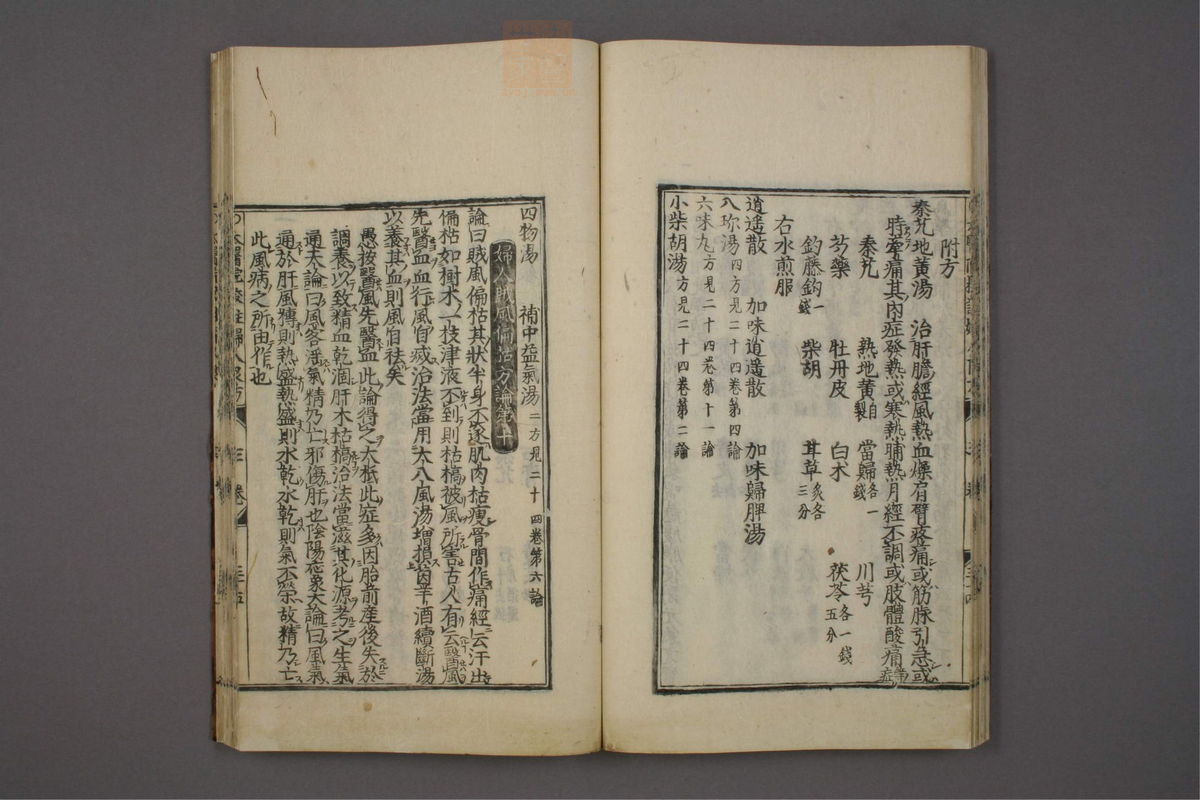 附方
秦艽地黄湯　治肝膽經風熱血燥肩臂疼痛或筋脉引急或
時牽痛其内症發熱或寒熱晡熱月經不調或肢體酸痛等症
秦艽　熟地黄自製　當歸各一錢　川芎
芍藥　牡丹皮　白朮　茯苓各一錢五分
釣藤鈎一錢　柴胡　甘草炙各三分
右水煎服
逍遥散　加味逍遥散　加味歸脾湯
八珎湯四方見二十四卷第四論
六味丸方見二十四卷第十一論
小柴胡湯方見二十四卷第二論
四物湯　補中益氣湯二方見二十四卷第六論
婦人賊風偏枯方論第十
論曰賊風偏枯其狀半身不遂肌肉枯瘦骨間作痛經云汗出
偏枯如樹木一枝津液不到則枯槁被風所害古人有云醫風
先醫血血行風自滅治法當用大八風湯増損茵芋酒續斷湯
以養其血則風自祛矣
愚按醫風先醫血此論得之大柢此症多因胎前產後失於
調養以致精血乾涸肝木枯槁治法當滋其化源考之生氣
通天論曰風客滛氣精乃亡邪傷肝也陰陽應象大論曰風氣
通於肝風摶則熱盛熱盛則水乾水乾則氣不榮故精乃亡
此風病之所由作也